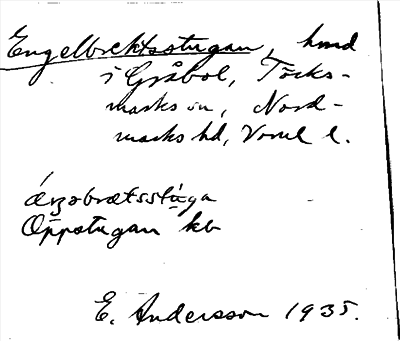 Engelbrektsstugan, hmd
i Gråbol, Töcks-
marks sn, Nord-
marks hd, Vrml l.
Oppstugan kb
E. Andersson 1935.